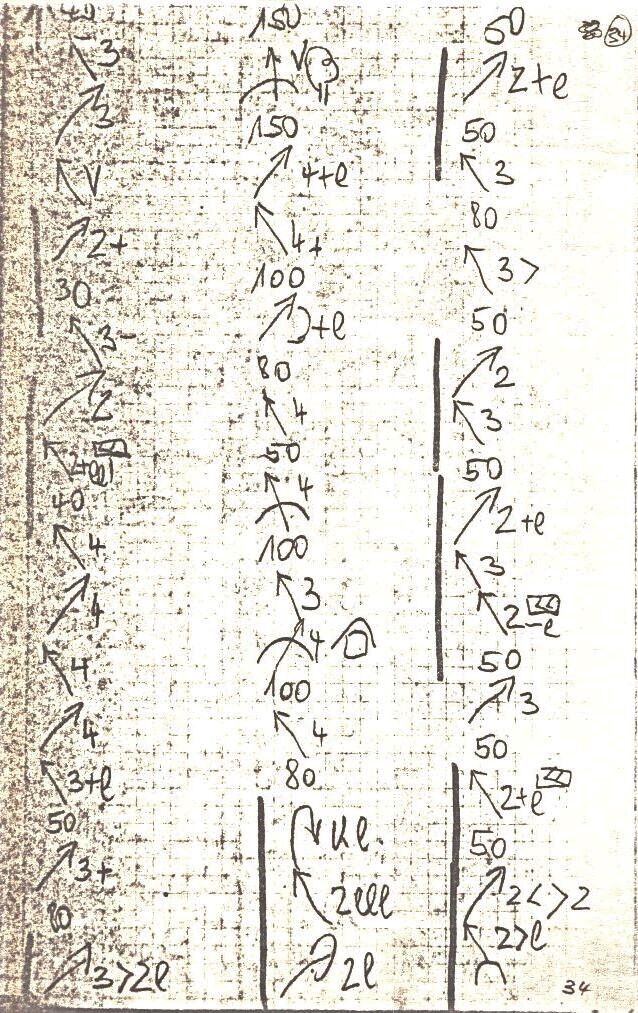 3
3
V
2+
30
3-
2
40
4
4
4
4
3+e
50
3+
80
3>2l
150
V
150
4+e
4+
100
80
4
50
4
100
3
4
100
4
80
2lll
2l
34
50
2+e
50
3
80
3>
50
2
3
50
2+e
3
2-e
50
3
50
2+e
50
2<>2
2>l
34